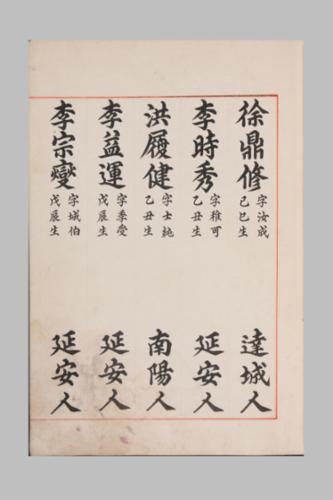 徐鼎修 字汝成 己巳生 達城人
李時秀 字稚可 乙丑生 延安人
洪履健 字士純 乙丑生 南陽人
李益運 字季受 戊辰生 延安人
李宗燮 字城伯 戊辰生 延安人